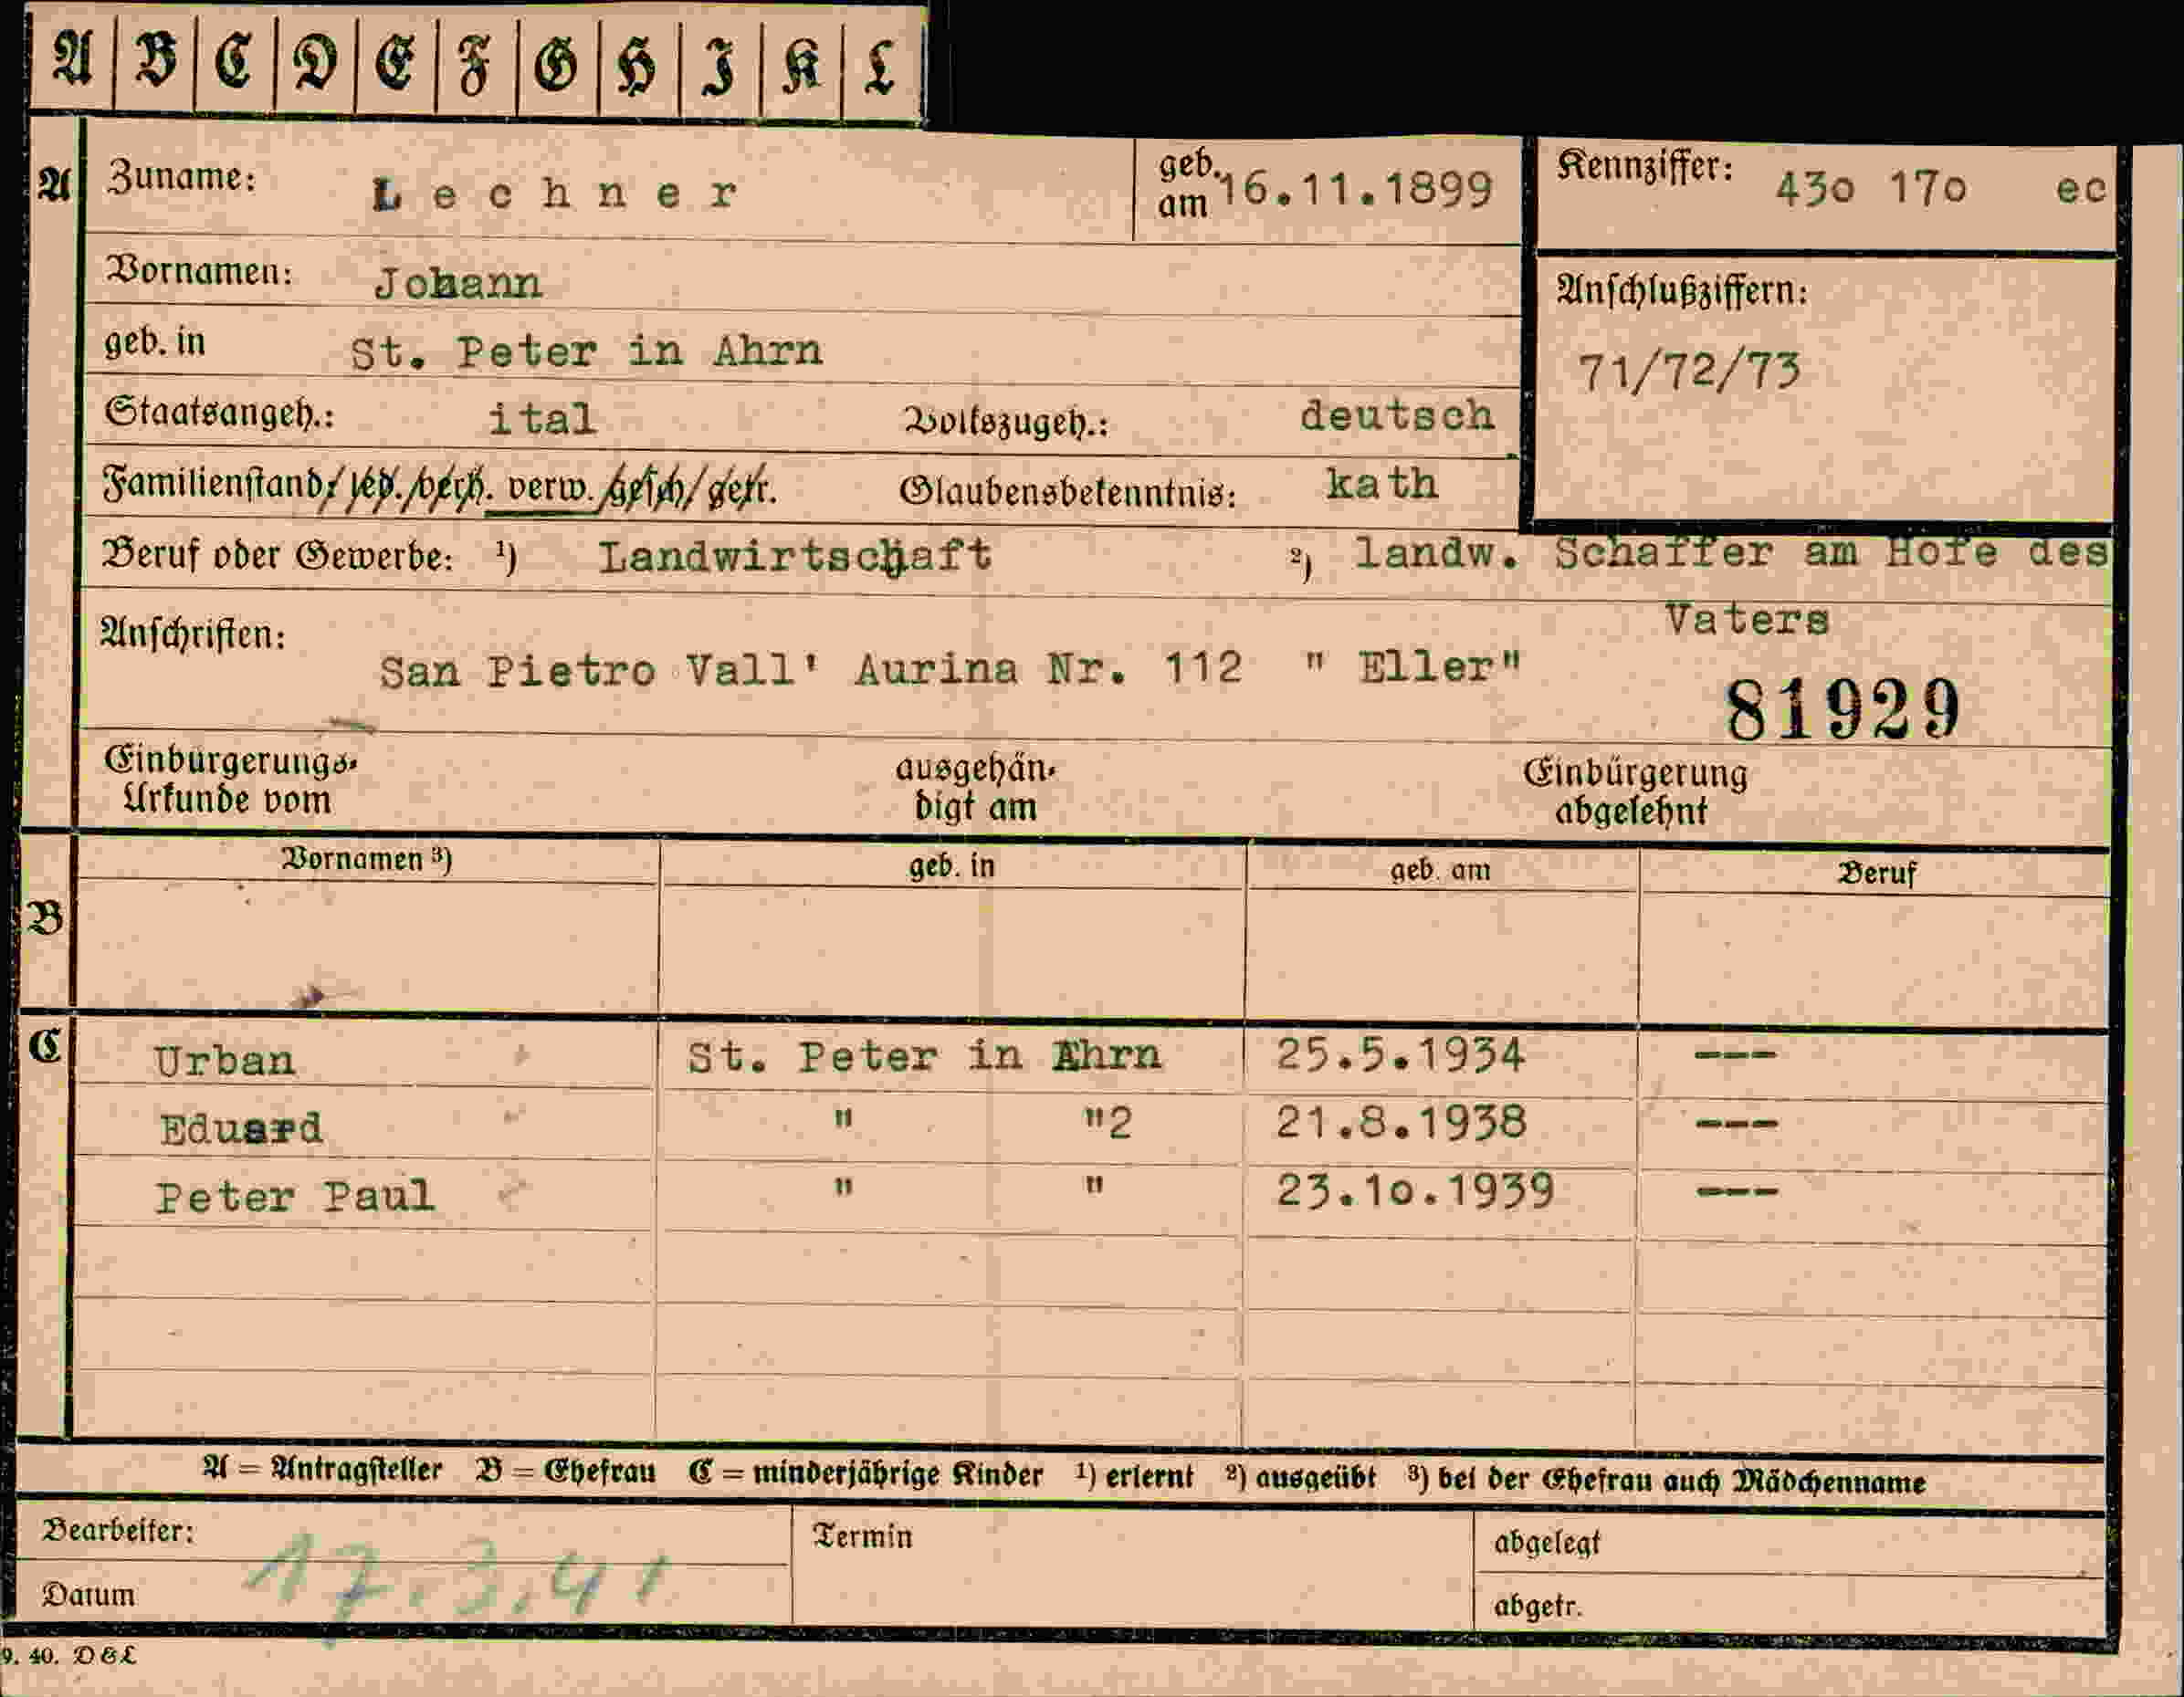 A B C D E F G H I K L
A Zuname: Lechner geb. am 16.11.1899 Kennziffer: 43o 17o ec
Vornamen: Johann
Anschlußziffern:
geb. in St. Peter in Ahrn
71/72/73
Staatsangeh.: ital Volkszugeh.: deutsch
Familienstand: led. verh. verw. gesch. getr. Glaubensbekenntnis: kath
Beruf oder Gewerbe: ¹) Landwirtschaft ²) landw. Schaffer am Hofe des
Vaters
Anschriften:
San Pietro Vall' Aurina Nr. 112 " Eller"
81929
Einbürgerungs- ausgehän- Einbürgerung
Urkunde vom digt am abgelehnt
Vornamen ³) geb. in geb. am Beruf
B
C Urban St. Peter in Ahrn 25.5.1934 ---
Eduard " "2 21.8.1938 ---
Peter Paul " " 23.1o.1939 ---
A = Antragsteller B = Ehefrau C = minderjährige Kinder ¹) erlernt ²) ausgeübt ³) bei der Ehefrau auch Mädchenname
Bearbeiter: Termin abgelegt
17.3.41
Datum abgetr.
9. 40. D&L